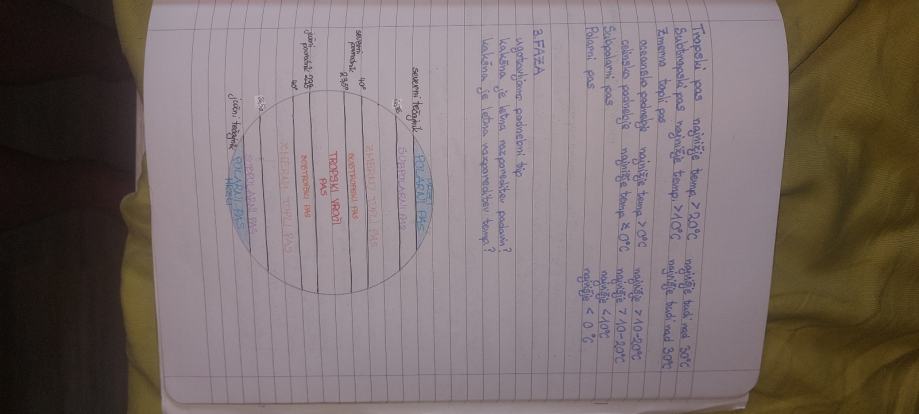 Tropski pas najnižje temp. > 20°C najvišje tudi nad 30°C
Subtropski pas najnižje temp. > 10°C najvišje tudi nad 30°C
Zmerno topli pas
oceansko podnebje najnižje temp > 0°C najvišje > 10-20°C
celinsko podnebje najnižje temp ≤ 0°C najvišje > 10-20°C
Subpolarni pas najvišje < 10°C
Polarni pas najvišje < 0°C
3. FAZA
ugotavljamo podnebni tip
kakšna je letna razporeditev padavin?
kakšna je letna razporeditev temp?
severni tečajnik
POLARNI PAS
SUBPOLARNI PAS
ZMERNO TOPLI PAS
40°
SUBTROPSKI PAS
severni povratnik 23,5°
TROPSKI VROČI
PAS
južni povratnik
SUBTROPSKI PAS
40°
ZMERNO TOPLI PAS
SUBPOLARNI PAS
južni tečajnik
POLARNI PAS